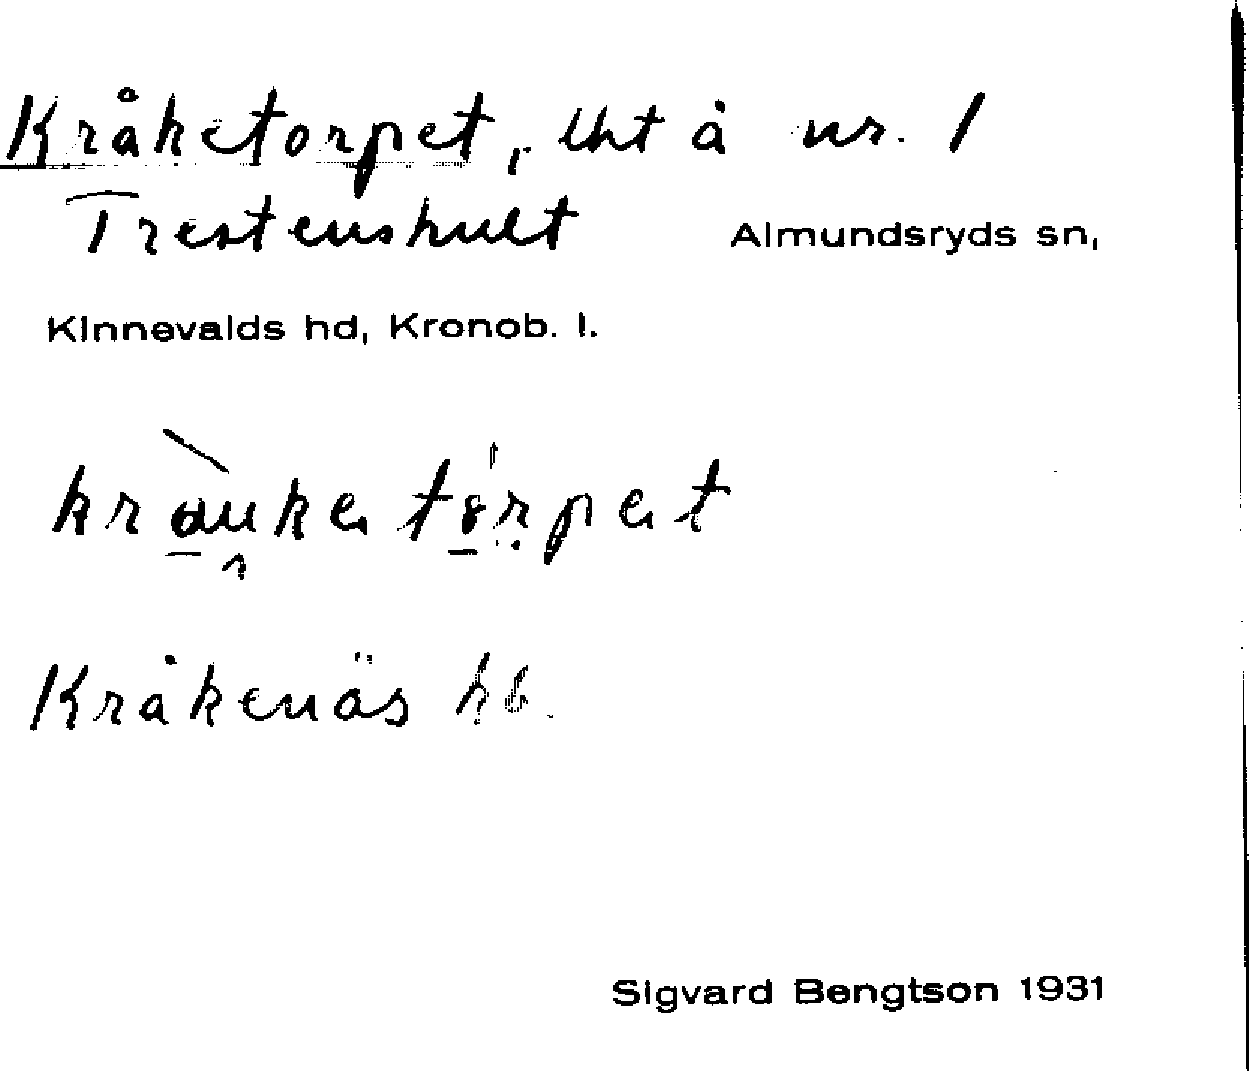 Kråketorpet, lht å nr. 1
Trestenshult Almundsryds sn,
Kinnevalds hd, Kronob. l.
kràukə tɵ́rpət
Kråkenäs hb.
Sigvard Bengtson 1931